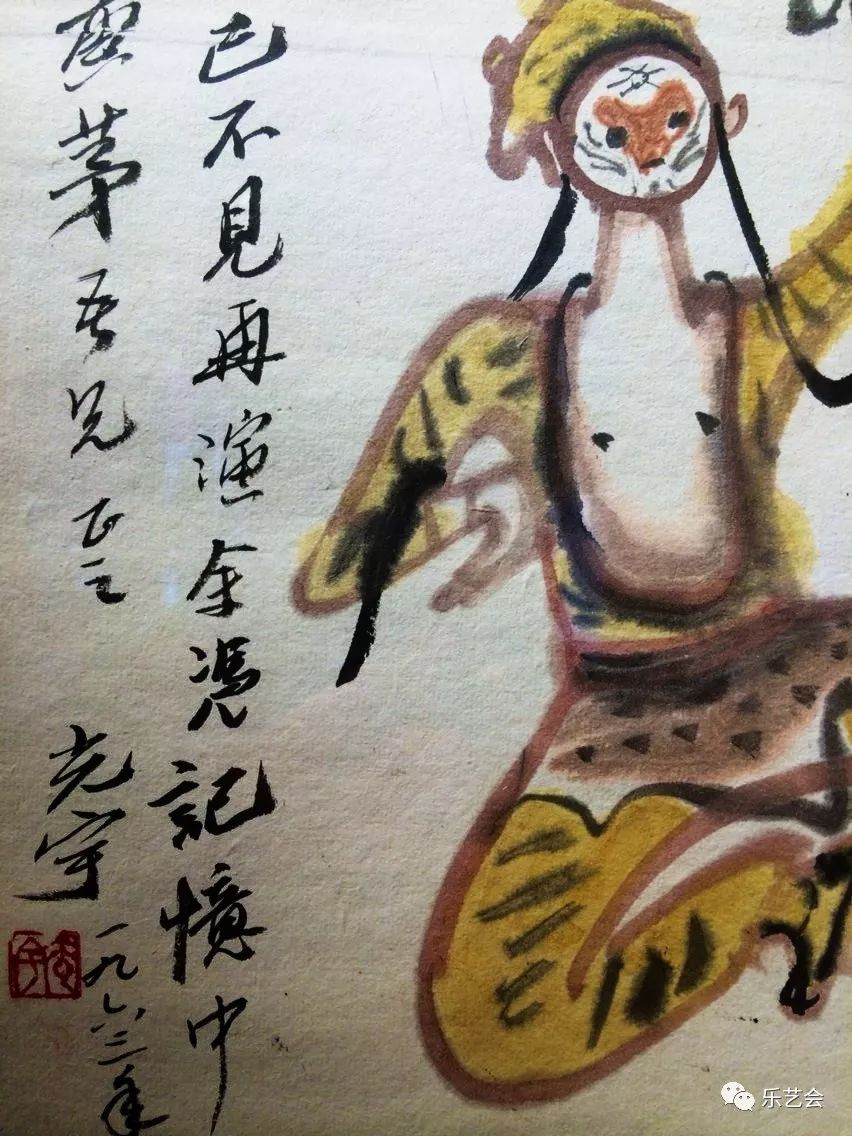 已不見再演全凴記憶中
茅吾兄正之
光宇
一九六三年
乐艺会